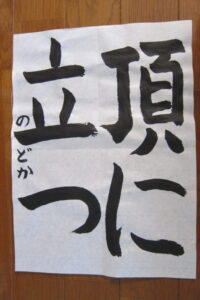 頂に
立つ
のどか